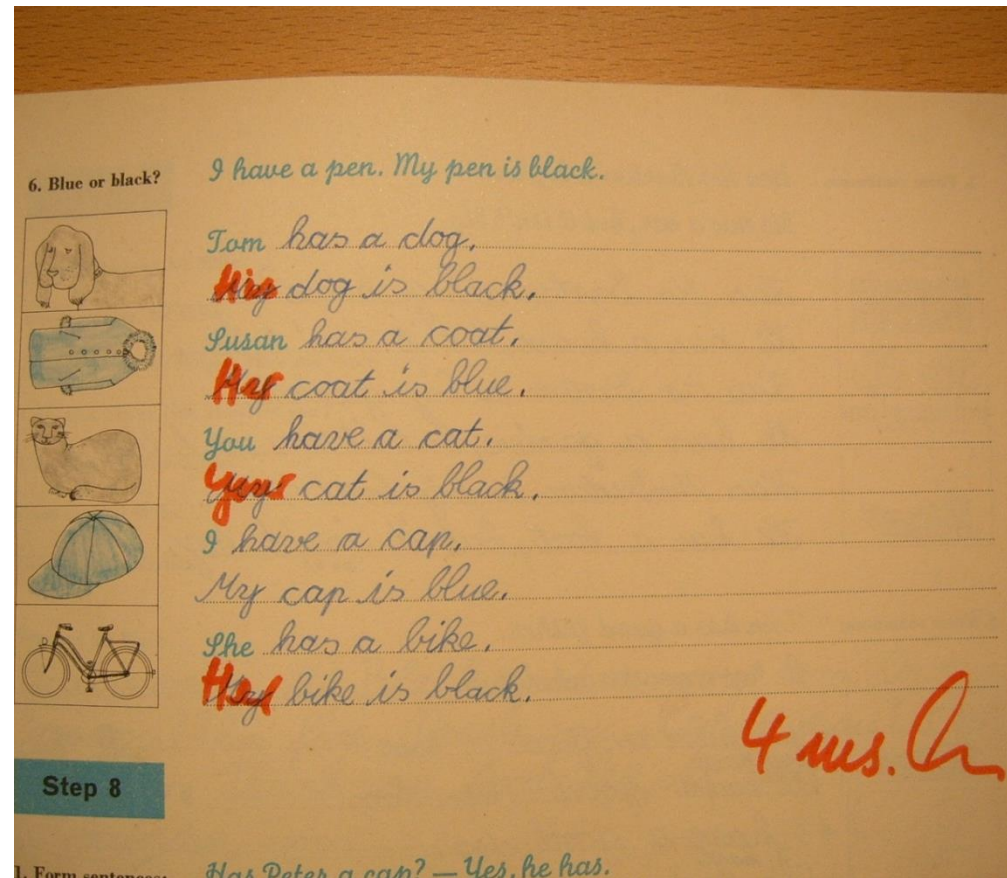 6. Blue or black?
I have a pen. My pen is black.
Tom has a dog.
His dog is black.
Susan has a coat.
Her coat is blue.
You have a cat.
Your cat is black.
I have a cap.
My cap is blue.
She has a bike.
Her bike is black.
4 ms.
Step 8
1. Form sentences:
Has Peter a cap? — Yes, he has.